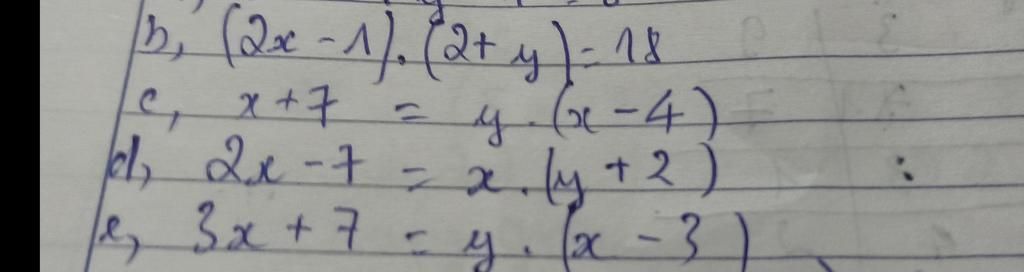 b, (2x - 1).(2 + y) = 18
c, x + 7 = y.(x - 4)
d, 2x - 7 = x.(y + 2) :
e, 3x + 7 = y.(x - 3)